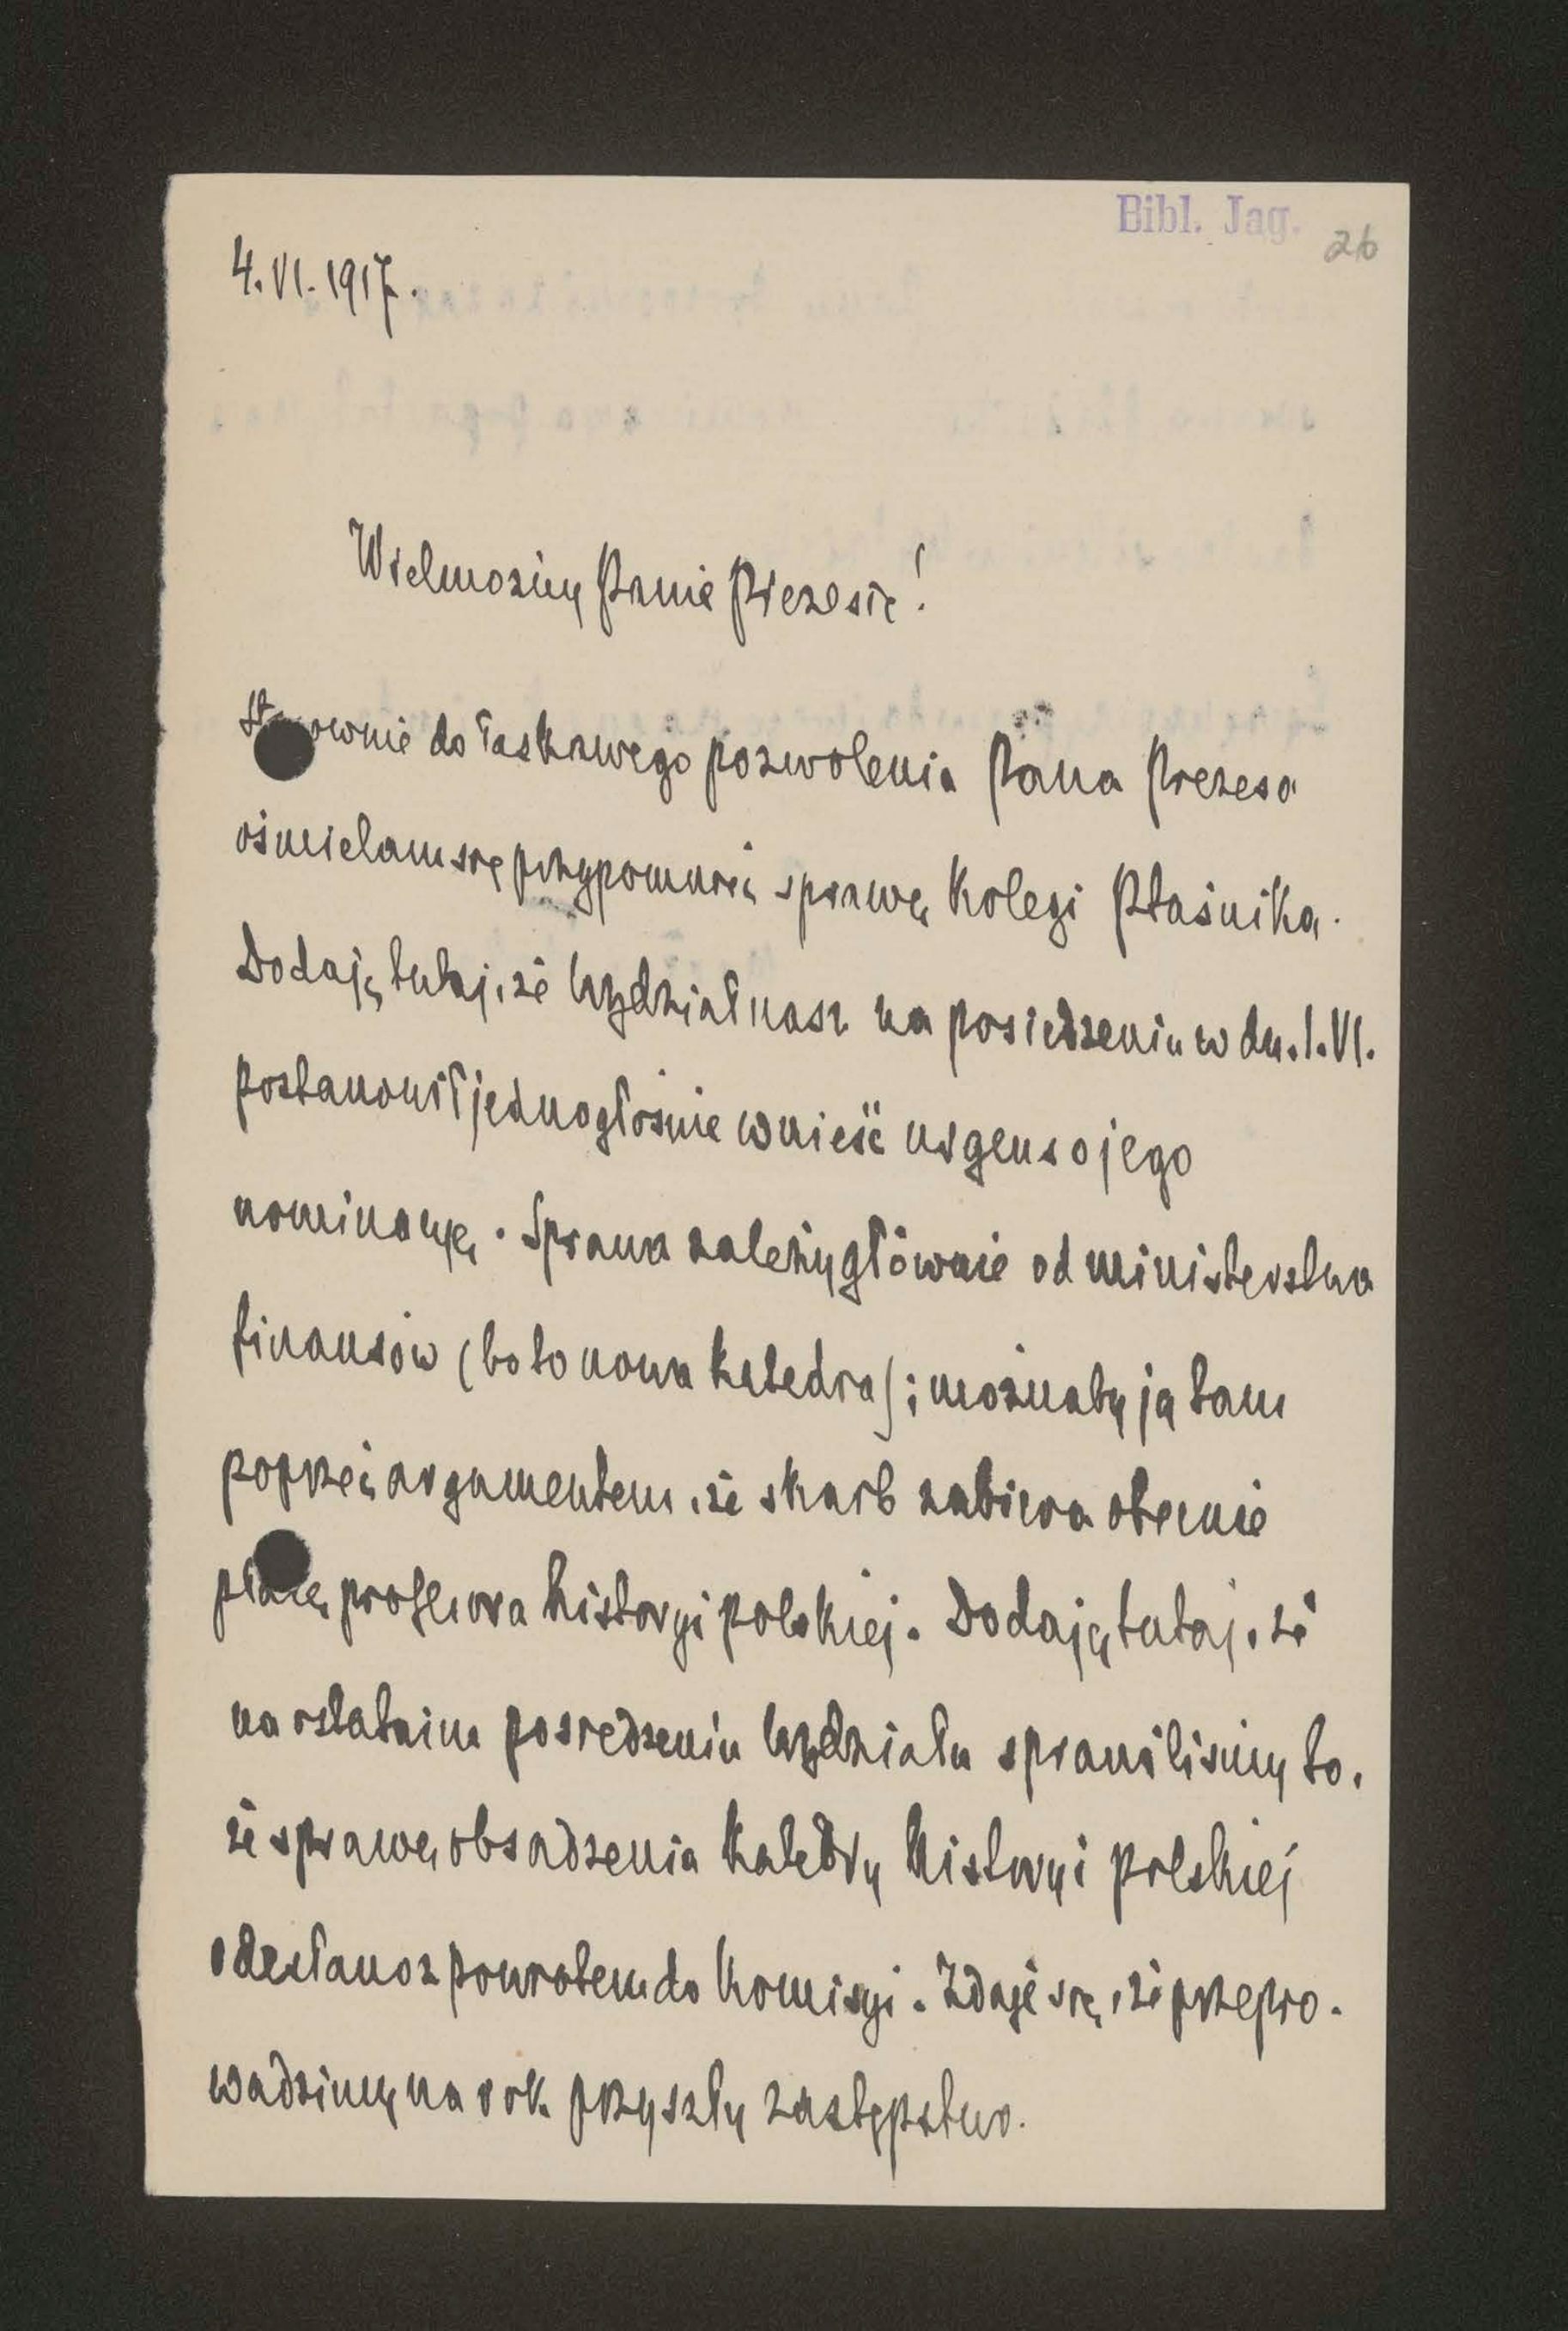 Bibl. Jag. 26
4.VI.1917.
Wielmożny Panie Prezesie!
Stosownie do łaskawego pozwolenia Pana Prezesa
ośmielam się przypomnieć sprawę kolegi Ptaśnika.
Dodaję tutaj, że Wydział nasz na posiedzeniu w dn. 1.VI.
postanowił jednogłośnie wnieść urgens o jego
nominacyę. Sprawa zależy głównie od ministerstwa
finansów (bo to nowa katedra); możnaby ją tam
poprzeć argumentem, że skarb zabiera obecnie
płacę profesora historyi polskiej. Dodaję tutaj, że
na ostatnim posiedzeniu Wydziału sprawiliśmy to,
że sprawę obsadzenia katedry historyi polskiej
odesłano z powrotem do komisyi. Zdaje się, że przepro-
wadzimy na rok przyszły zastępstwo.